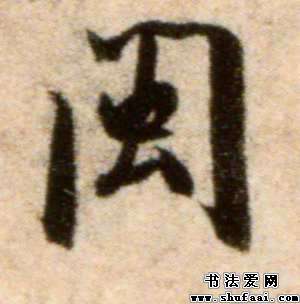 闽
书法爱网
www.shufaai.com